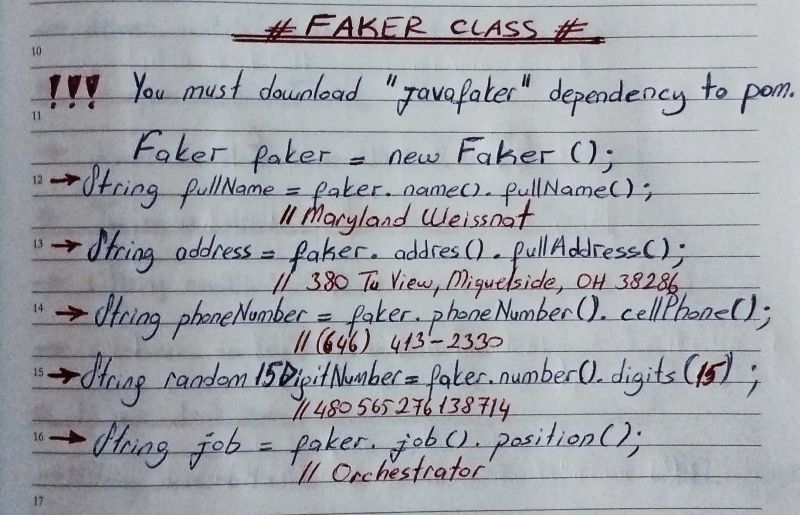 # FAKER CLASS #
10
!!! You must download "javafaker" dependency to pom.
11
Faker faker = new Faker();
12 → String fullName = faker.name().fullName();
// Maryland Weissnat
13 → String address = faker.addres().fullAddress();
// 380 Tu View, Miguelside, OH 38286
14 → String phoneNumber = faker.phoneNumber().cellPhone();
// (646) 413-2330
15 → String random15DigitNumber = faker.number().digits(15);
// 480565276138714
16 → String job = faker.job().position();
// Orchestrator
17